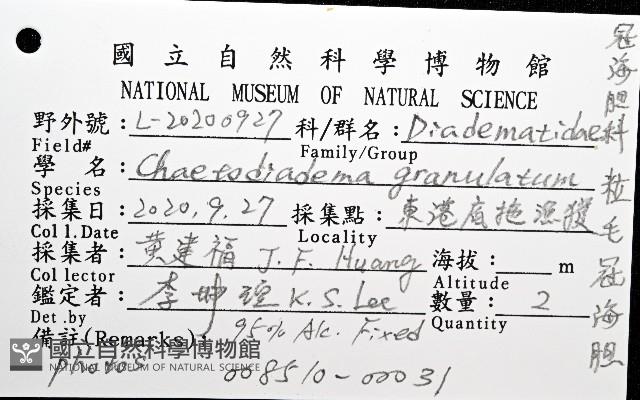 國立自然科學博物館
NATIONAL MUSEUM OF NATURAL SCIENCE
野外號：L-20200927 科/群名：Diadematidae
Field# Family/Group
學名：Chaetodiadema granulatum
Species
採集日：2020.9.27 採集點：東港底拖漁獲
Coll.Date Locality
採集者：黃建福 J.F. Huang 海拔：m
Collector Altitude
鑑定者：李坤瑄 K.S. Lee 數量：2
Det.by Quantity
備註(Remarks)：95% Alc. Fixed
photos 008510-00031
冠海胆科 粒毛冠海胆
國立自然科學博物館
NATIONAL MUSEUM OF NATURAL SCIENCE